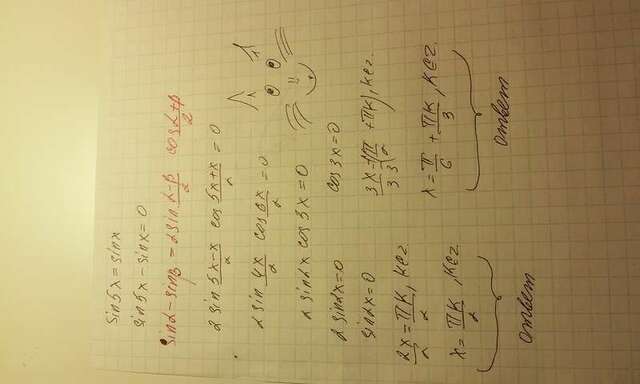 sin5x = sinx
sin5x - sinx = 0
sinα - sinβ = 2sin (α-β)/2 cos (α+β)/2
2 sin (5x-x)/2 cos (5x+x)/2 = 0
2 sin 4x/2 cos 6x/2 = 0
2 sin2x cos 3x = 0
2 sin2x = 0
sin2x = 0
2x/2 = πk/2, k∈z.
x = πk/2, k∈z
ответ
cos 3x = 0
3x/3 = 1/3(π/2 + πk), k∈z.
x = π/6 + πk/3, k∈z.
ответ